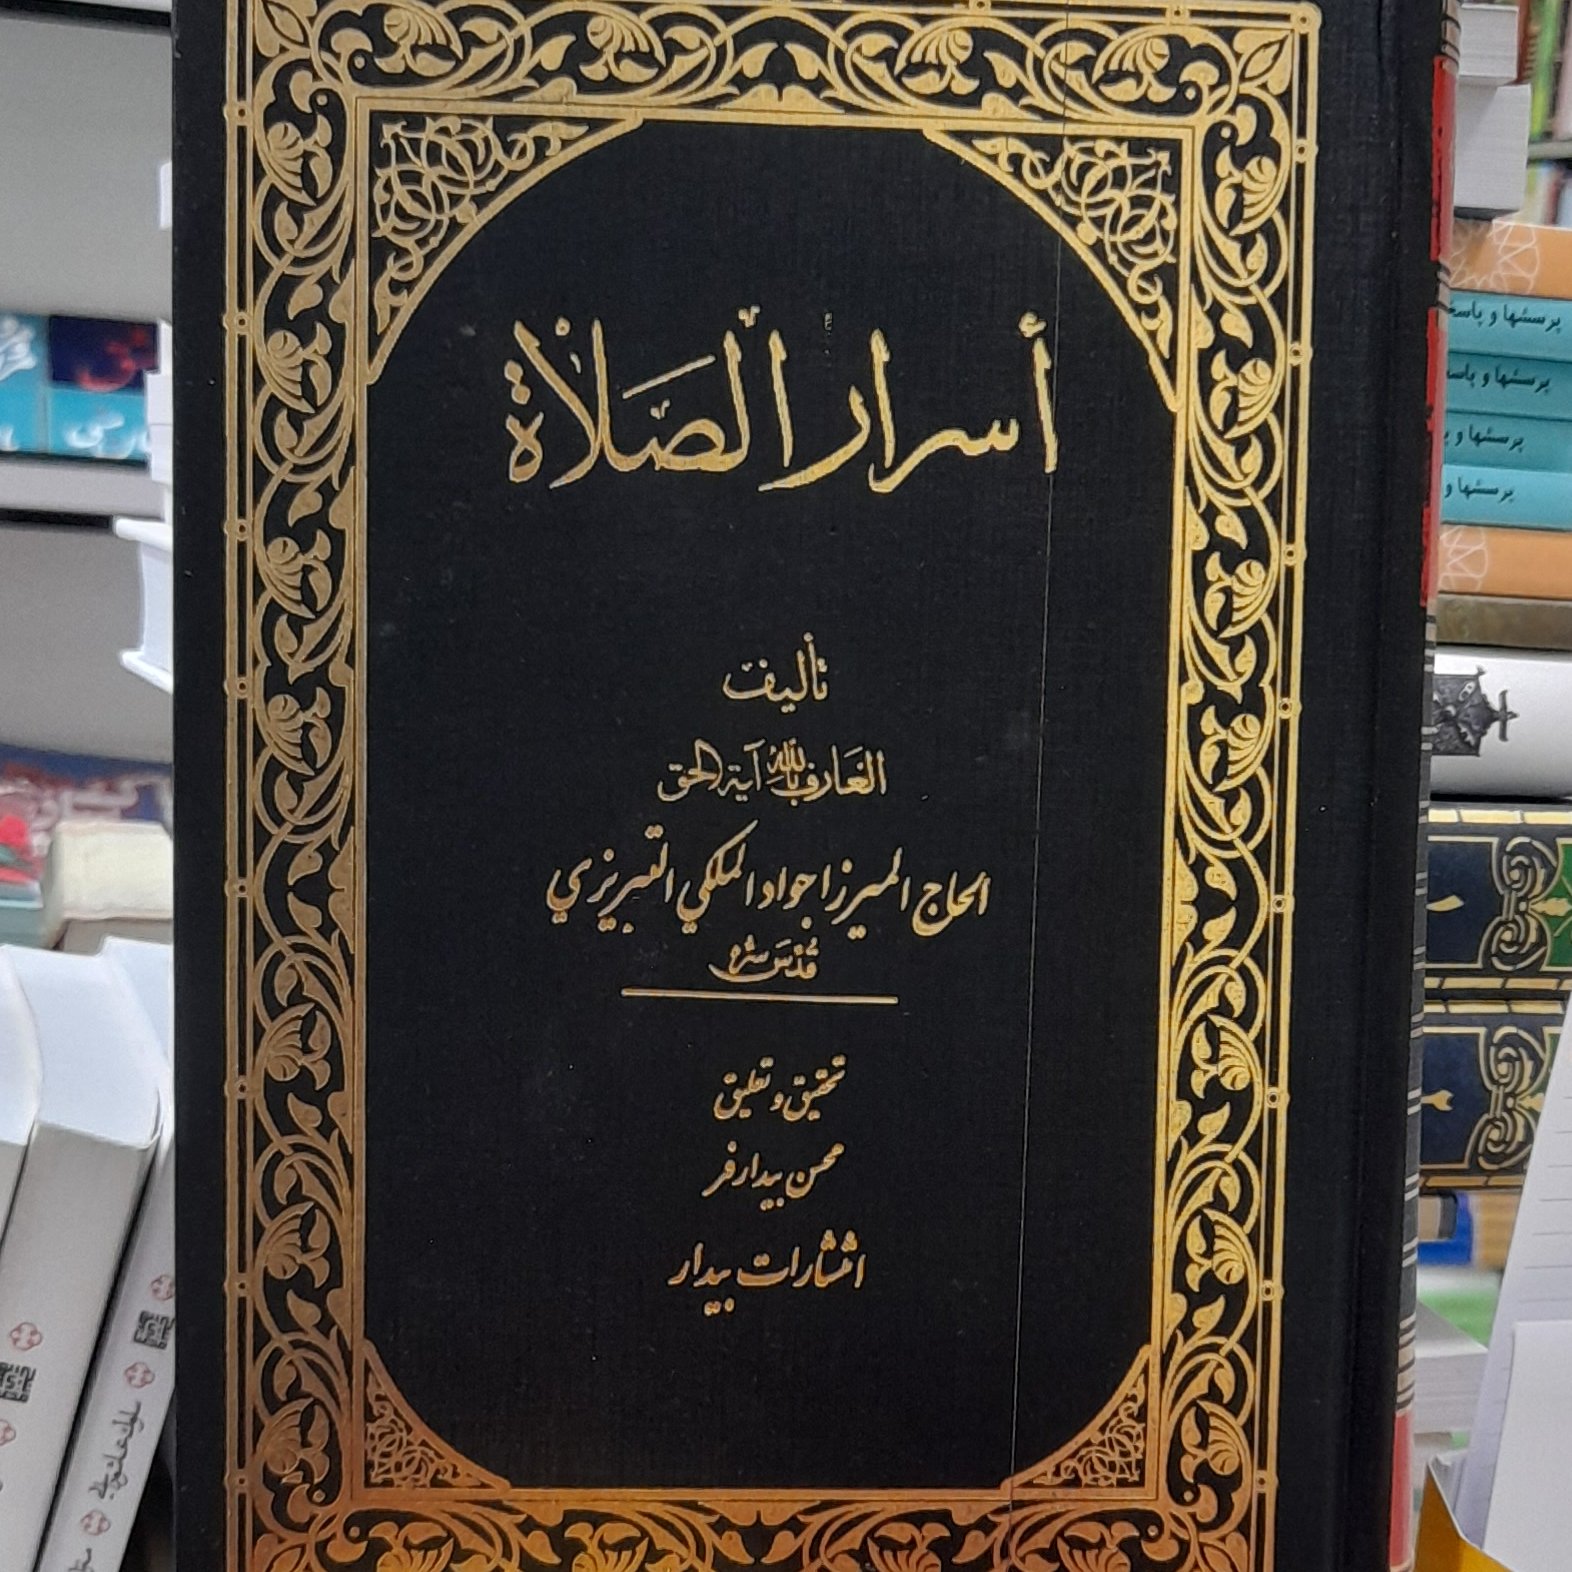 أسرار الصّلاة
تأليف
العَارف بالله آية الحق
الحاج الميرزا جواد الملكي التبريزي
قدّس سرّه
تحقيق و تعليق
محسن بیدارفر
انتشارات بیدار
پرسشها و پاسخ
پرسشها و پاسخ
پرسشها و پ
پرسشها و
۱
۲